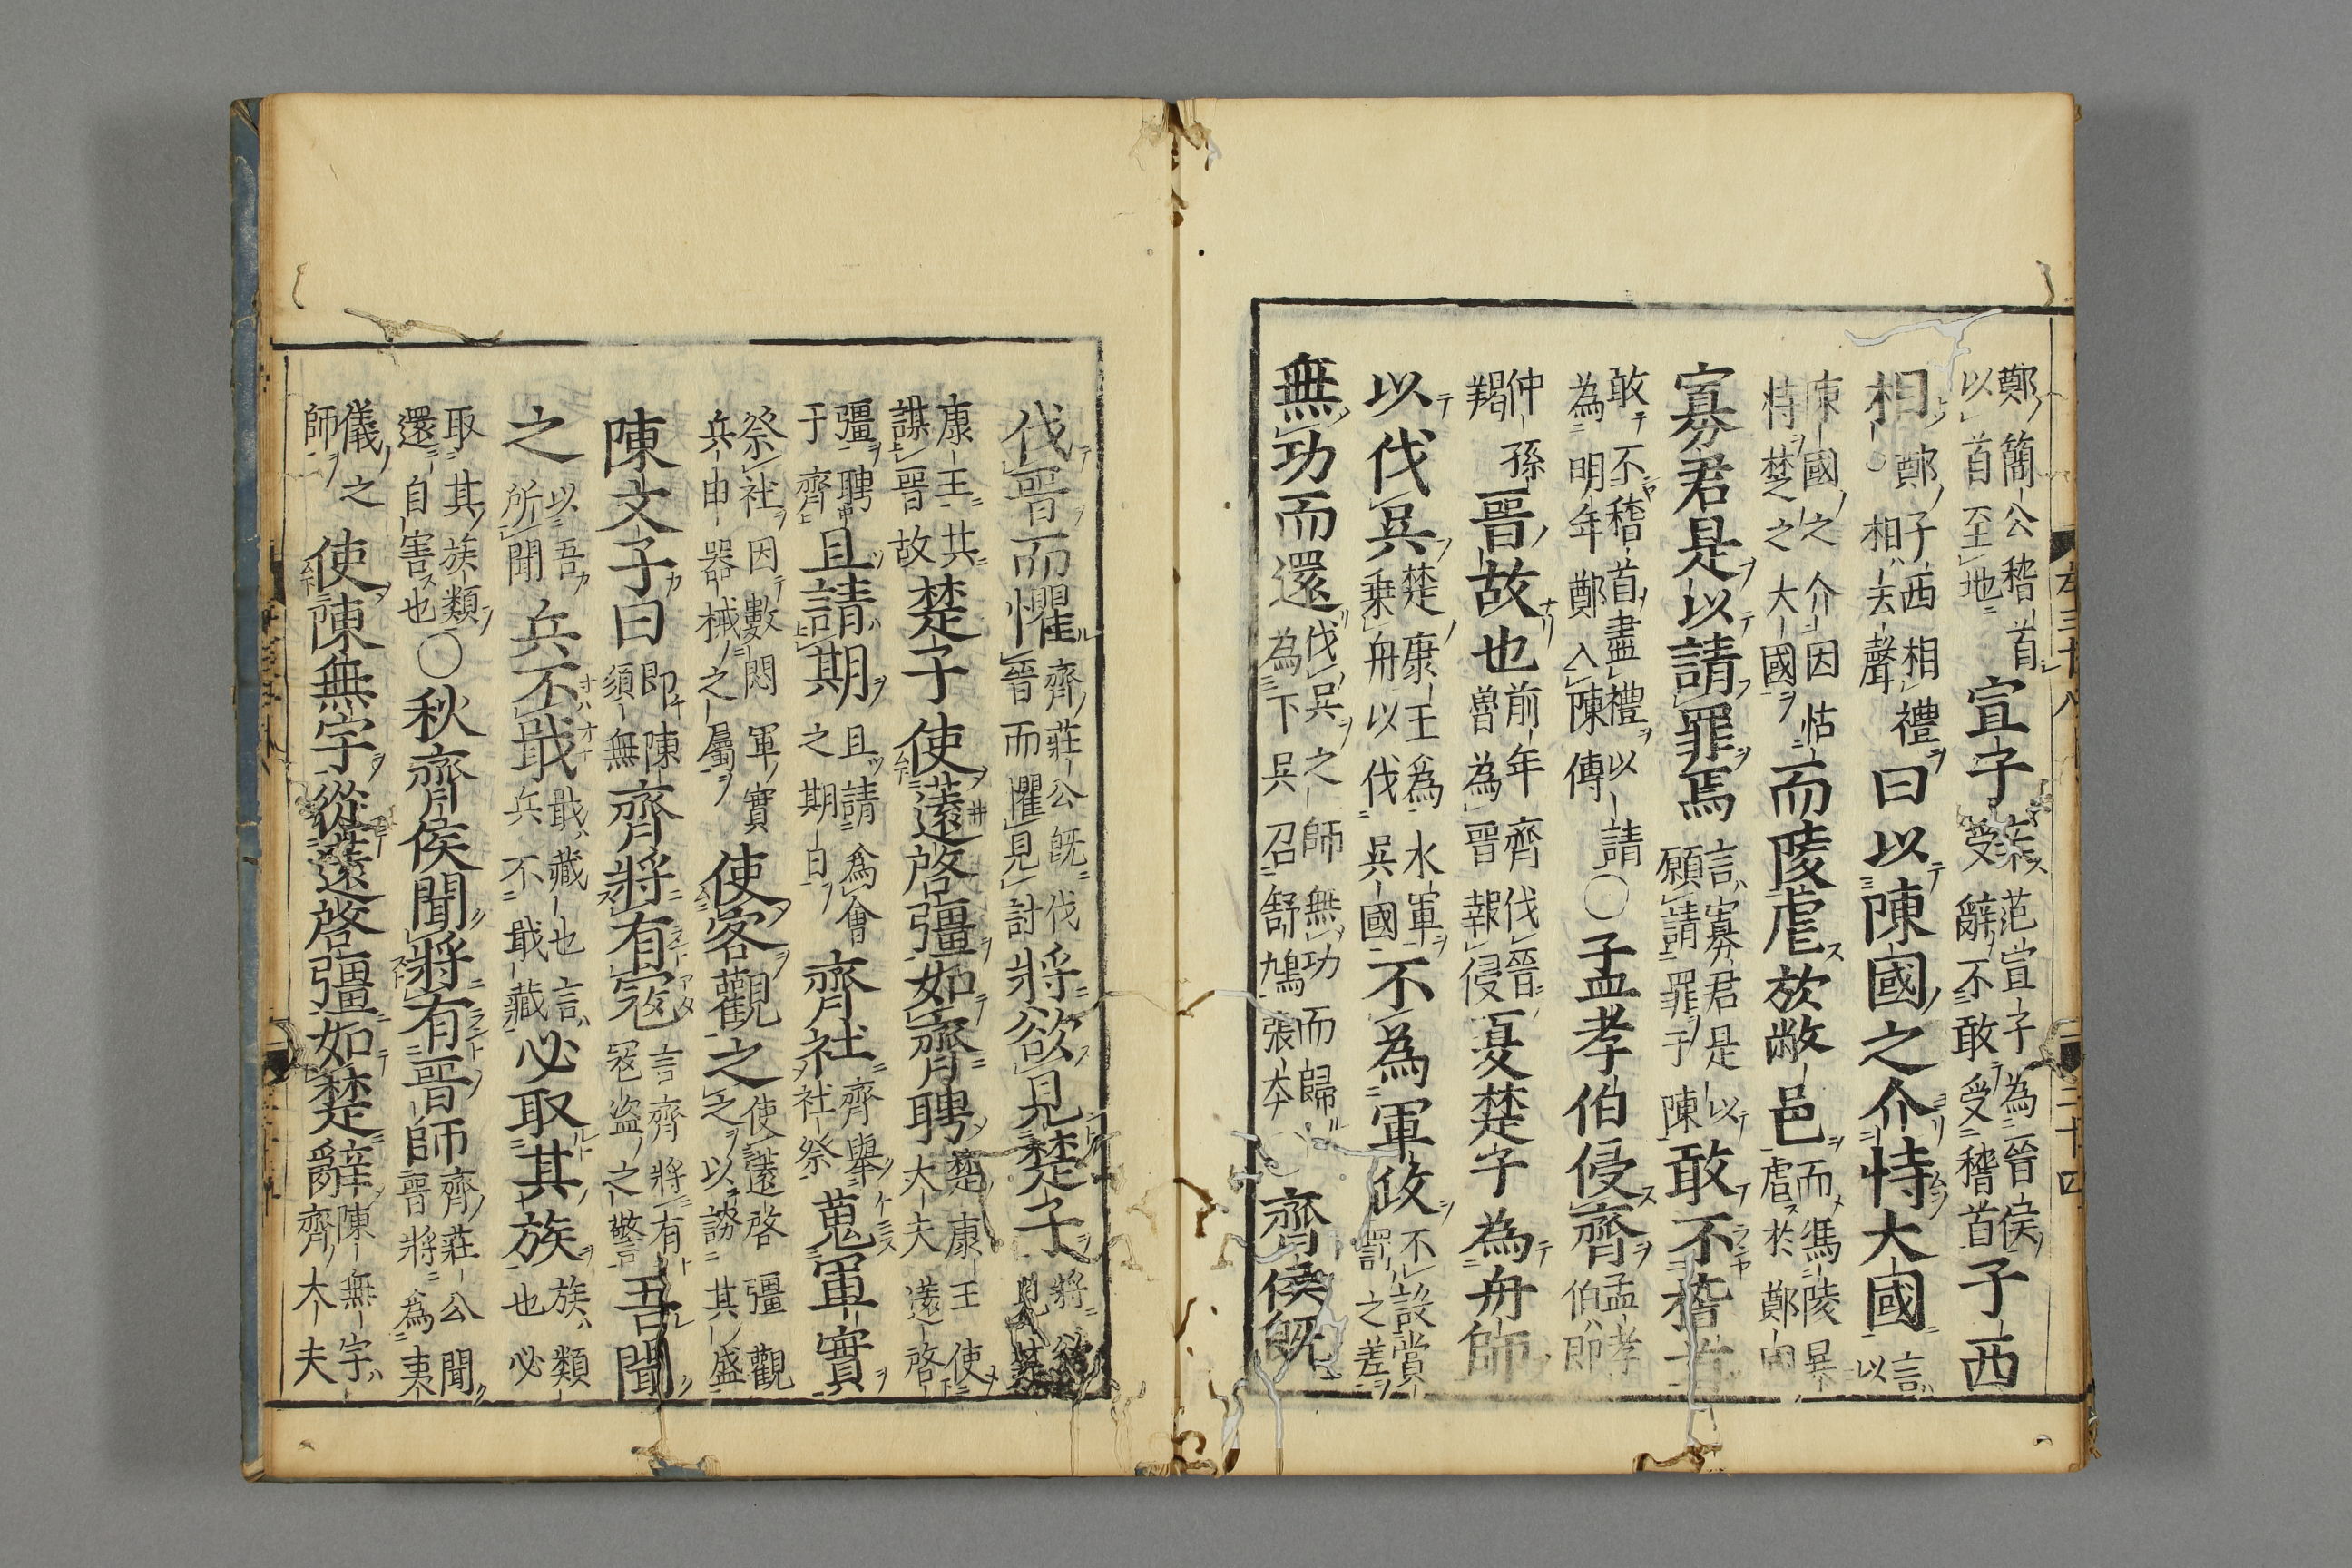 鄭簡公稽首
以首至地
宣子辭
范宣子為晉侯
受辭不敢受稽首
子西
相
鄭子西相禮
相去聲
曰以陳國之介恃大國
言
以
陳國之介因怙
恃楚之大國
而陵虐於敝邑
而馮陵暴
虐於鄭
寡君是以請罪焉
言寡君是以
願請罪于陳
敢不稽首
敢不稽首盡禮以請
為明年鄭入陳傳
○孟孝伯侵齊
孟孝
伯即
仲孫
羯
晉故也
前年齊伐晉
魯為晉報侵
夏楚子為舟師
以伐吳
楚康王為水軍
乗舟以伐吳國
不為軍政
不設賞
罰之差
無功而還
伐吳之師無功而歸
為下吳召舒鳩張本
齊侯既
伐晉而懼
齊莊公既伐
晉而懼見討
將欲見楚子
將欲
見楚
康王共
謀晉故
楚子使薳啓彊如齊聘
楚康王使
大夫薳啓
彊聘
于齊
且請期
且請為會
之期日
齊社
齊舉
社祭
蒐軍實
祭社因數閱軍實
兵甲器械之屬
使客觀之
使薳啓彊觀
之以誇其盛
陳文子曰
即陳
須無
齊將有寇
言齊將有
寇盗之警
吾聞
之
以吾
所聞
兵不戢
戢藏也言
兵不戢藏
必取其族
族類
也必
取其族類
還自害也
○秋齊侯聞將有晉師
齊莊公聞
晉將為夷
儀之
師
使陳無宇從薳啓彊如楚辭
陳無宇
齊大夫